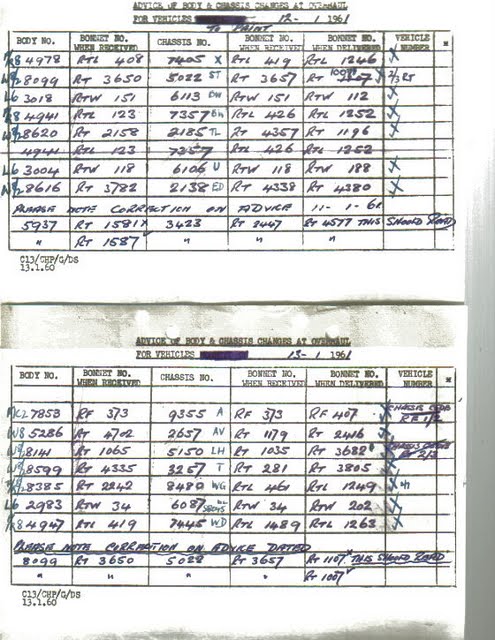 ADVICE OF BODY & CHASSIS CHANGES AT OVERHAUL
FOR VEHICLES 12 - 1 1961
TO PAINT
BODY NO. BONNET NO. WHEN RECEIVED CHASSIS NO. BONNET NO. WHEN DELIVERED BONNET NO. WHEN DELIVERED VEHICLE NUMBER
4978 RTL 408 7405 X RTL 419 RTL 1246
8099 RT 3650 5022 ST RT 3657 1007 2/3 RT
L6 3018 RTW 151 6113 RTW 151 RTW 112
4941 RTL 123 7357 RTL 426 RTL 1252
8620 RT 2158 2185 TL RT 4357 RT 1196
4941 RTL 123 7357 RTL 426 RTL 1252
L6 3004 RTW 118 6106 U RTW 118 RTW 188
8616 RT 3782 2138 ED RT 4338 RT 4380
PLEASE NOTE CORRECTION ON ADVICE 11 - 1 - 61
5937 RT 1581 3423 RT 2447 RT 4577 THIS SHOULD READ
" RT 1587 " " "
C13/CHP/G/DS
13.1.60
ADVICE OF BODY & CHASSIS CHANGES AT OVERHAUL
FOR VEHICLES 13 - 1 1961
BODY NO. BONNET NO. WHEN RECEIVED CHASSIS NO. BONNET NO. BONNET NO. WHEN DELIVERED VEHICLE NUMBER
7853 RF 373 9355 A RF 373 RF 407 CHASSIS CODE RF 1/2
W8 5286 RT 4702 2657 AV RT 1179 RT 2416
8141 RT 1065 5150 LH RT 1035 RT 3682 RT 2/3
8599 RT 4335 3257 T RT 281 RT 3805
8385 RT 2242 8480 WG RTL 461 RTL 1249
L6 2983 RTW 34 6087 RTW 34 RTW 202
4947 RTL 419 7445 WD RTL 1489 RTL 1263
PLEASE NOTE CORRECTION ON ADVICE DATED
8099 RT 3650 5022 RT 3657 RT 1107 THIS SHOULD READ
" " " " RT 1007
C13/CHP/G/DS
13.1.60